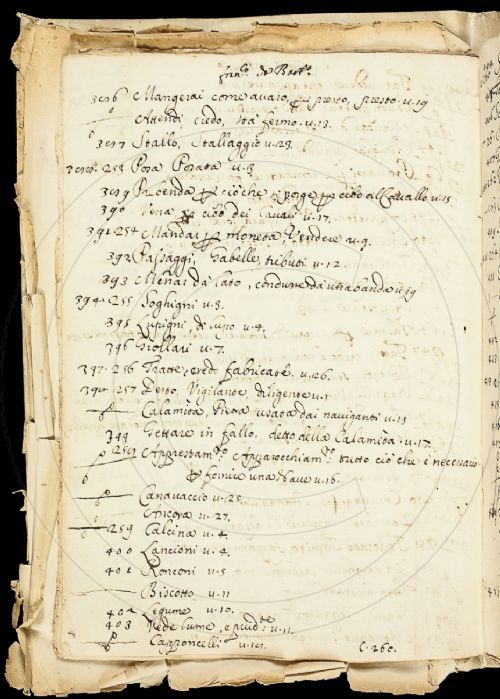 fran.º da Barb.º
3c86 Mangerai come avaro, per presto, presto. v. 19
Attendi credo, sta fermo. v. 13.
3c87 Stallo, Stallaggio v. 23.
253 Posa Posata v. 3
3c89 Provenda per ciò che si porge per cibo al Cavallo v. 15
390 Vena per cibo dei Cavai v. 17.
391. 254 Mandar per moneta Vendere v. 9.
392 Passaggi, Gabelle, tributi v. 12.
393 Menar da lato, condurre da una banda v. 19
394. 255 Soghigni v. 3.
395 Lupigni, di lupo v. 4.
396 v. 7.
397. 256 Tratte, credo fabricate. v. 26.
398 257 Desto, Vigilante, diligente v. 1
Calamita, Pietra usata dai naviganti v. 13
399 Gettare in fallo, detto della Calamita. v. 17.
259 Apprestam.to Apparecchiam.to tutto ciò che è necessario
per fornire una Nave v. 16.
Canavaccio v. 25.
Ancora v. 27.
259 Calcina v. 4.
400 Lancioni v. 4.
401 Ronconi v. 5
Biscotto v. 11
402 Legume v. 10.
403 Vede lume, v. 11.
Capponcelli v. 121. C. 260.